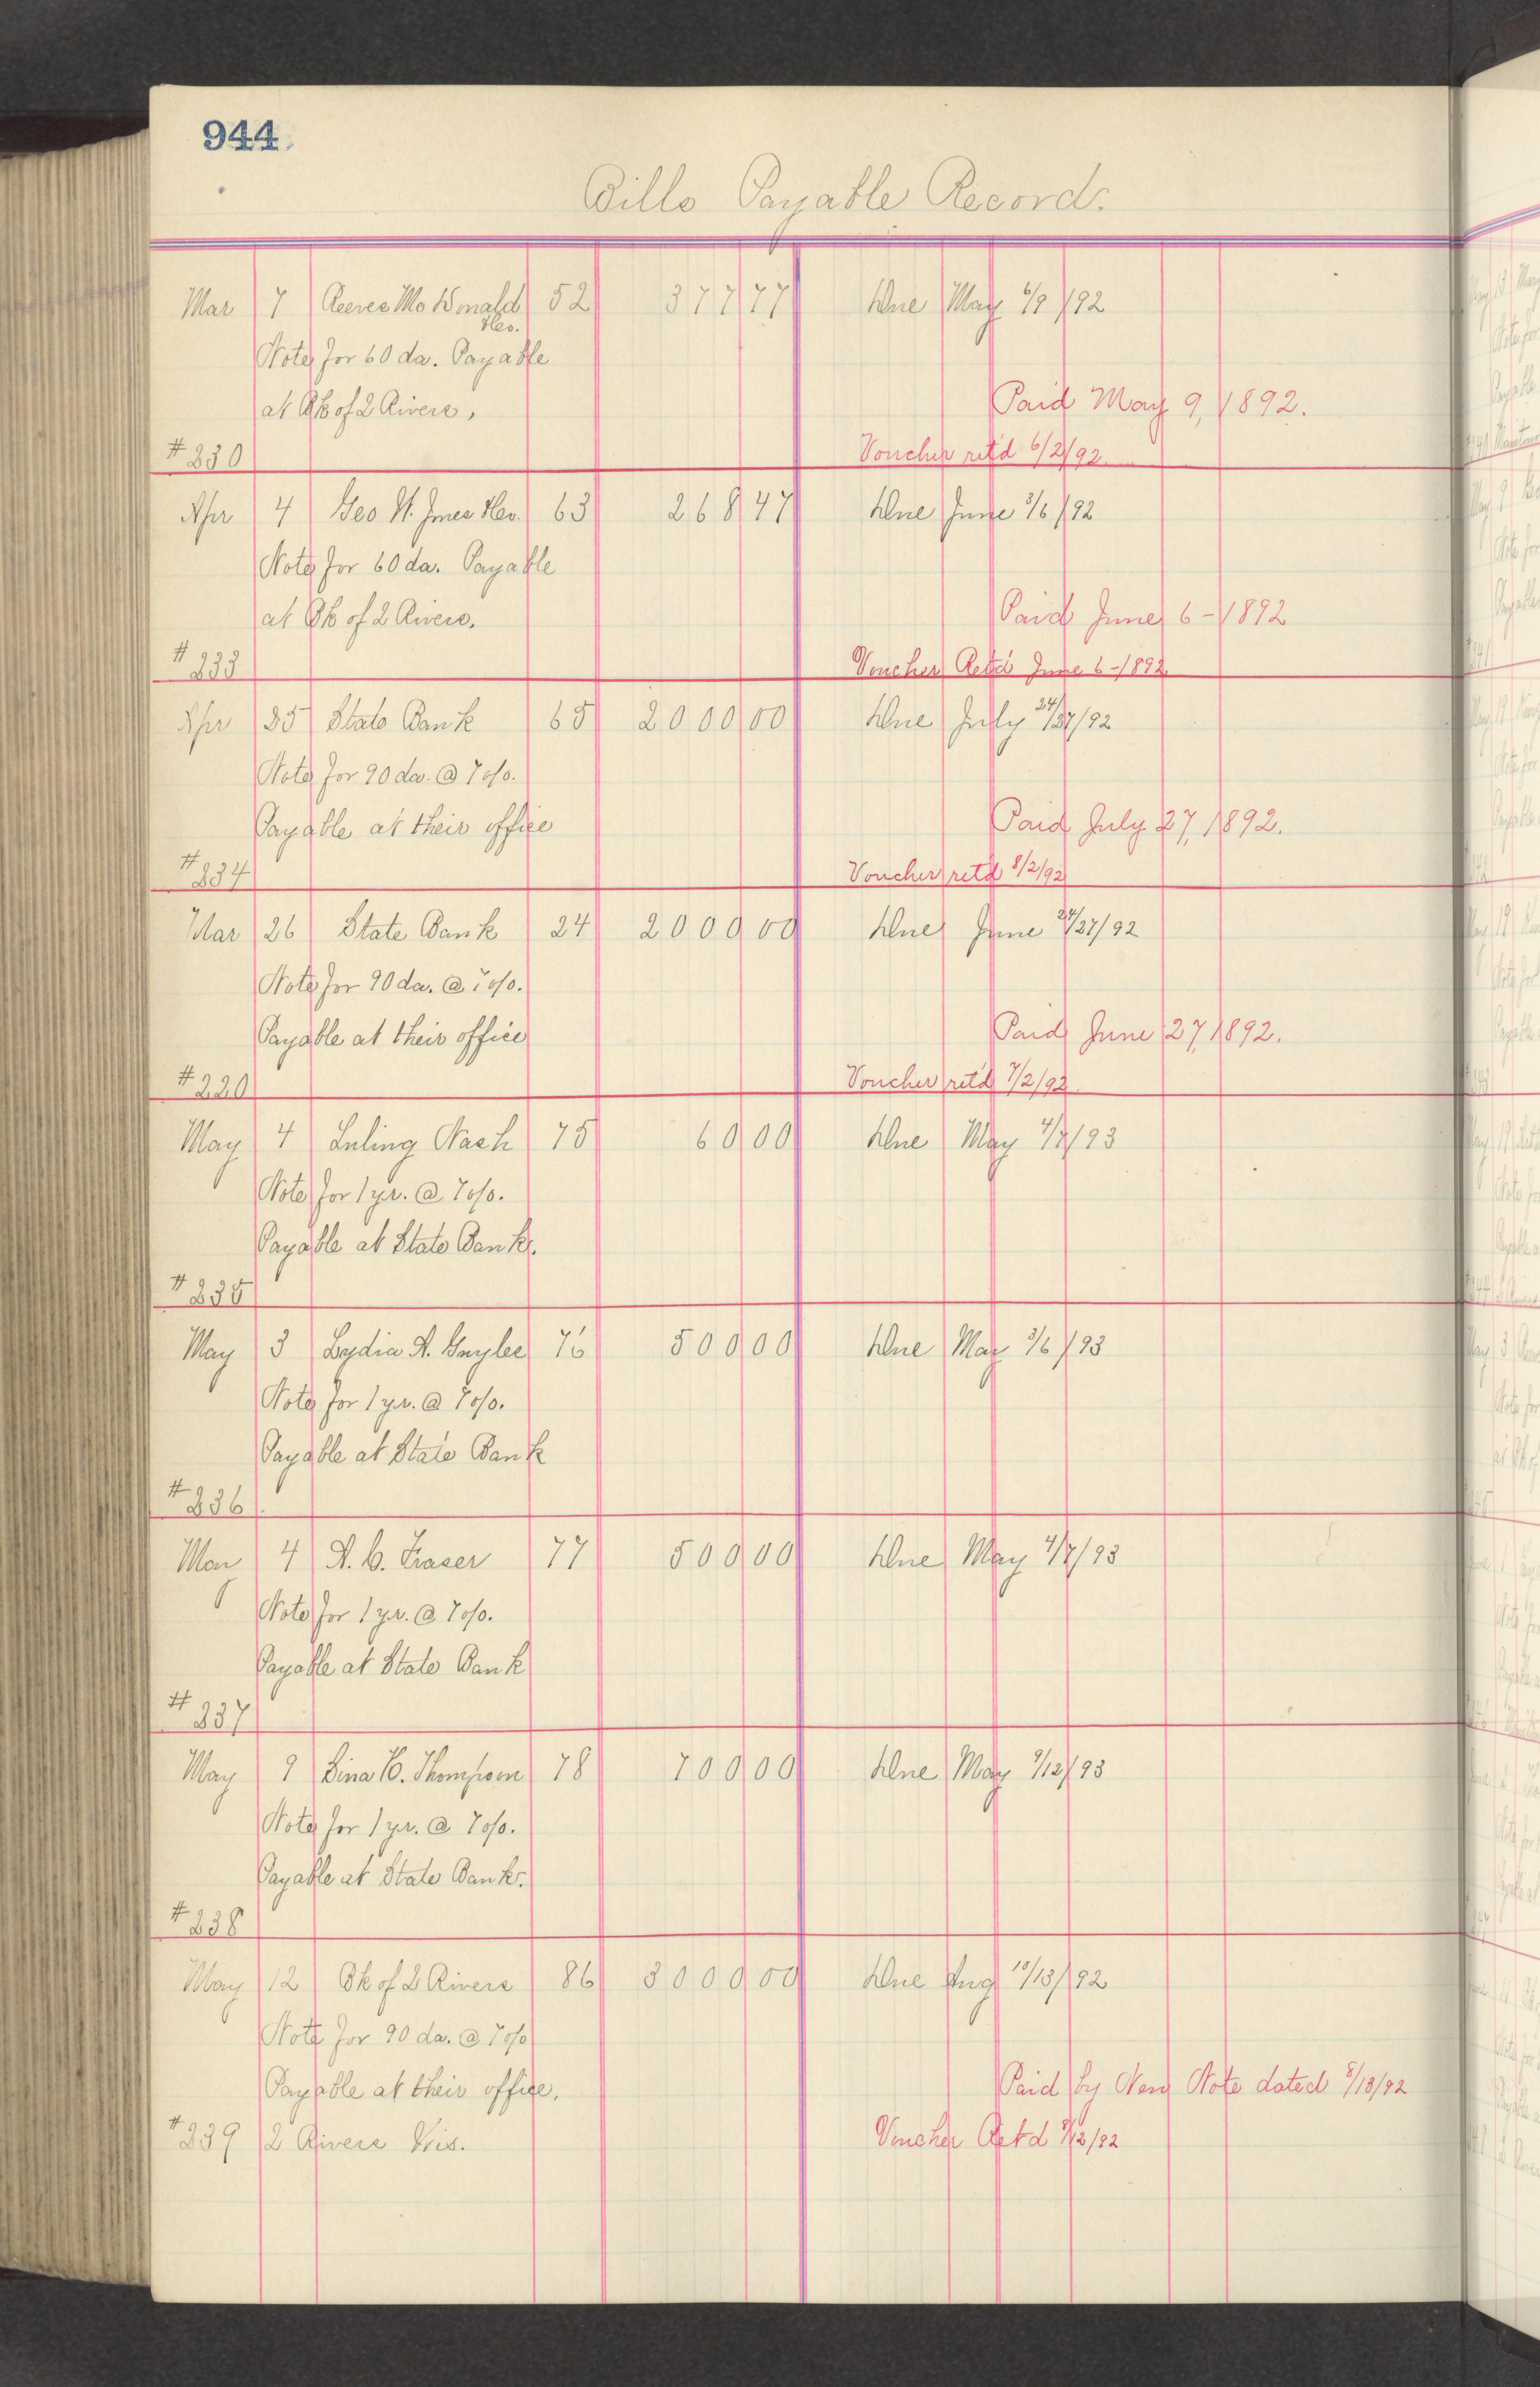 944.
Bills Payable Record.
Mar 7 Reeves McDonald 52 377 77 Due May 6/9/92
Note for 60 da. Payable
at Bk of 2 Rivers, Paid May 9, 1892.
#230 Voucher ret'd 6/2/92
Apr 4 Geo H. Jones 63 268 47 Due June 3/6/92
Note for 60 da. Payable
at Bk of 2 Rivers. Paid June 6-1892
#233 Voucher Retd June 6-1892
Apr 25 State Bank 65 2000 00 Due July 24/27/92
Note for 90 da. @ 7 o/o.
Payable at their office Paid July 27, 1892.
#234 Voucher ret'd 8/2/92
Mar 26 State Bank 24 2000 00 Due June 24/27/92
Note for 90 da. @ 7 o/o.
Payable at their office Paid June 27, 1892.
#220 Voucher ret'd 7/2/92
May 4 Luling Nash 75 60 00 Due May 4/7/93
Note for 1 yr. @ 7 o/o.
Payable at State Bank.
#235
May 3 Lydia A. 76 500 00 Due May 3/6/93
Note for 1 yr. @ 7 o/o.
Payable at State Bank
#236
May 4 A. C. Fraser 77 500 00 Due May 4/7/93
Note for 1 yr. @ 7 o/o.
Payable at State Bank
#237
May 9 Lina B. Thompson 78 700 00 Due May 9/12/93
Note for 1 yr. @ 7 o/o.
Payable at State Bank.
#238
May 12 Bk of 2 Rivers 86 3000 00 Due Aug 10/13/92
Note for 90 da. @ 7 o/o
Payable at their office, Paid by New Note dated 8/13/92
#239 2 Rivers Wis. Voucher Retd